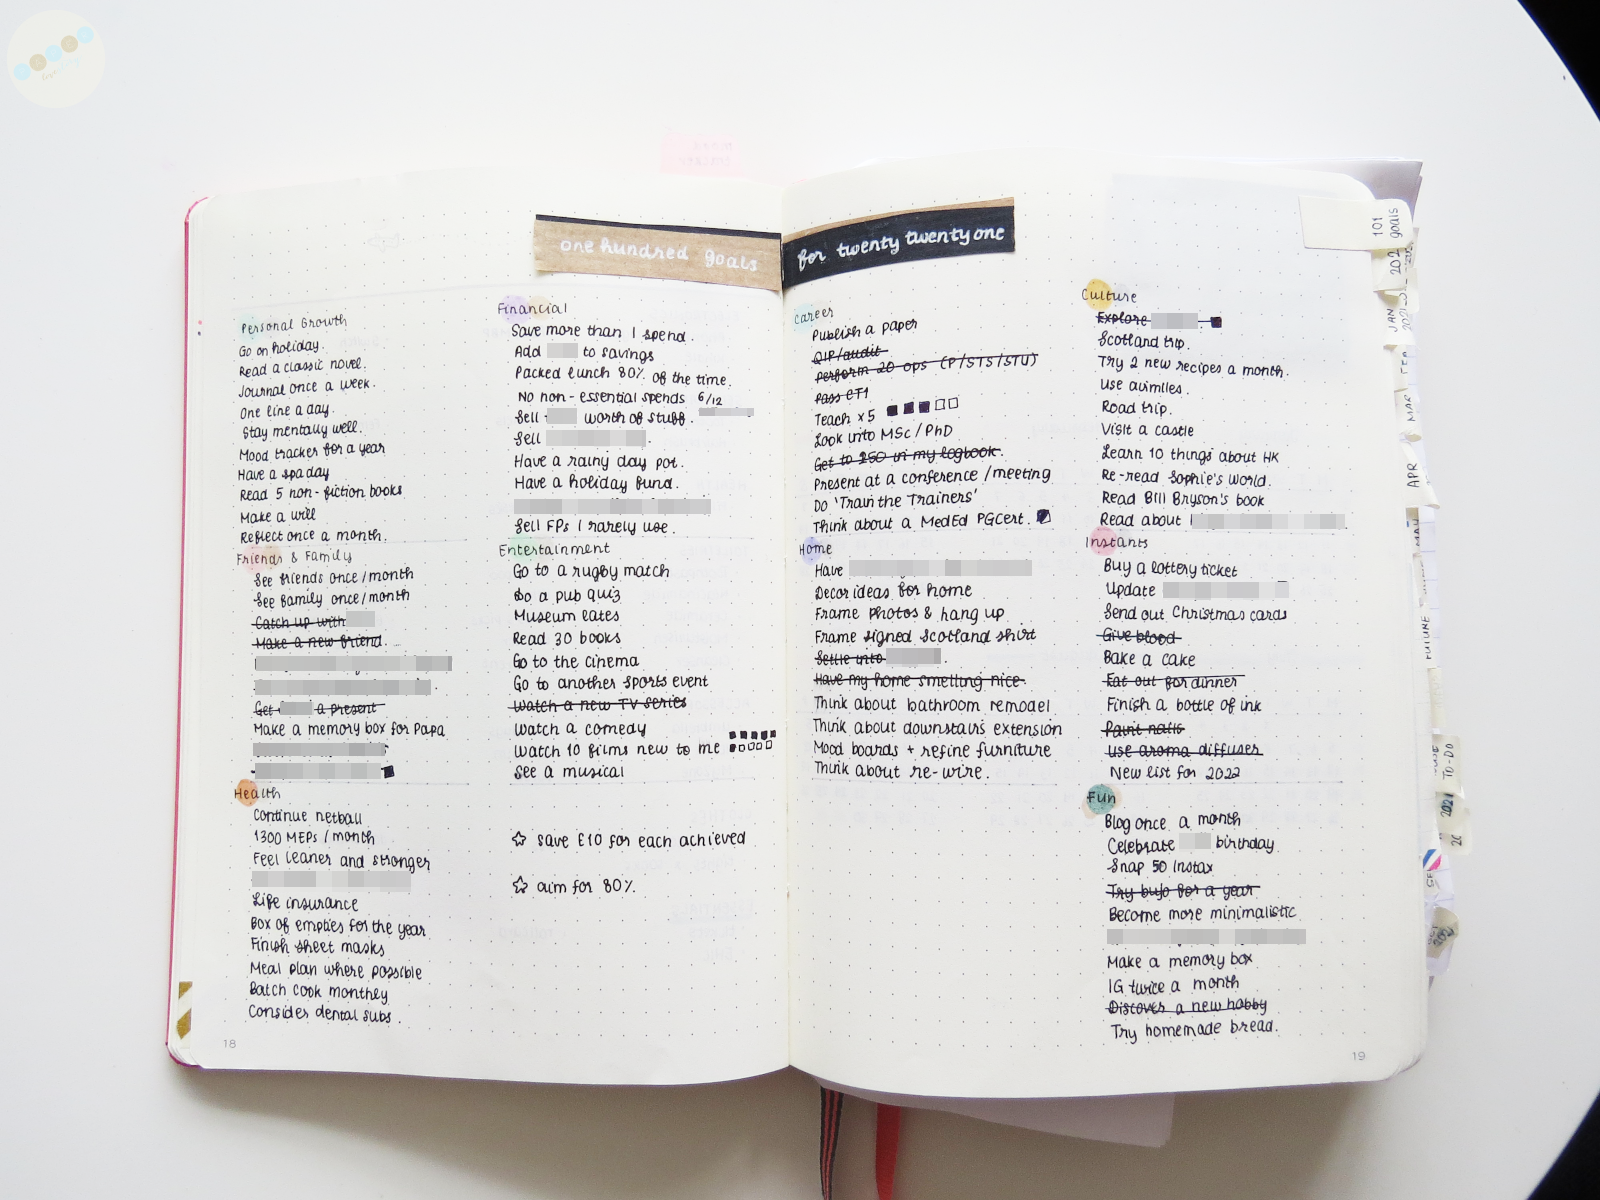 one hundred goals
for twenty twenty one
Personal Growth
Go on holiday.
Read a classic novel.
Journal once a week.
One line a day.
Stay mentally well.
Mood tracker for a year
Have a spa day
Read 5 non-fiction books
Make a will
Reflect once a month.
Friends & Family
See friends once/month
See family once/month
Catch up with
Make a new friend
Get a present
Make a memory box for Papa
Health
Continue netball
1300 MEPs/month
Feel leaner and stronger
Life insurance
Box of empties for the year
Finish sheet masks
Meal plan where possible
Batch cook monthly
Consider dental subs.
18
Financial
Save more than I spend.
Add to savings
Packed lunch 80% of the time.
No non-essential spends 6/12
Sell worth of stuff.
Sell .
Have a rainy day pot.
Have a holiday fund.
Sell FPs I rarely use.
Entertainment
Go to a rugby match
Do a pub quiz
Museum lates
Read 30 books
Go to the cinema
Go to another sports event
Watch a new TV series
Watch a comedy
Watch 10 films new to me
See a musical
☆ save £10 for each achieved
☆ aim for 80%
Career
Publish a paper
QIP/audit
Perform 20 ops (P/STS/STU)
Pass CT1
Teach x5
Look into MSc/PhD
Get to 250 in my logbook.
Present at a conference/meeting
Do 'Train the Trainers'
Think about a MedEd PGCert.
Home
Have
Decor ideas for home
Frame photos & hang up
Frame signed Scotland shirt
Settle into .
Have my home smelling nice.
Think about bathroom remodel
Think about downstairs extension
Mood boards + refine furniture
Think about re-wire.
Culture
Explore
Scotland trip.
Try 2 new recipes a month.
Use avimiles.
Road trip.
Visit a castle
Learn 10 things about HK
Re-read Sophie's World.
Read Bill Bryson's book
Read about
Instants
Buy a lottery ticket
Update
Send out Christmas cards
Give blood
Bake a cake
Eat out for dinner
Finish a bottle of ink
Paint nails
Use aroma diffuser
New list for 2022
Fun
Blog once a month
Celebrate birthday
Snap 50 Instax
Try bujo for a year
Become more minimalistic
Make a memory box
IG twice a month
Discover a new hobby
Try homemade bread.
19
101
goals
JAN
MAR
APR
FUTURE
TO-DO
2021